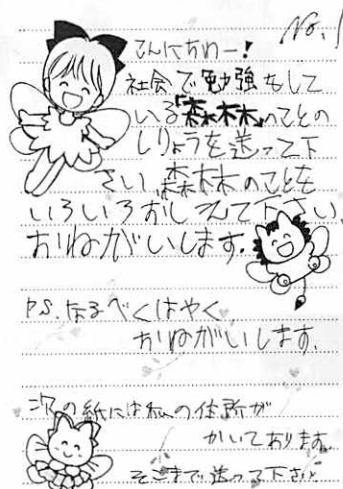 No.1
こんにちわー!
社会で勉強をして
いる「森林」のことの
しりょうを送って下
さい。森林のことを
いろいろおしえて下さい。
おねがいします。
P.S.なるべくはやく
おねがいします。
次の紙には私の住所が
かいてあります。
そこまで送って下さい。